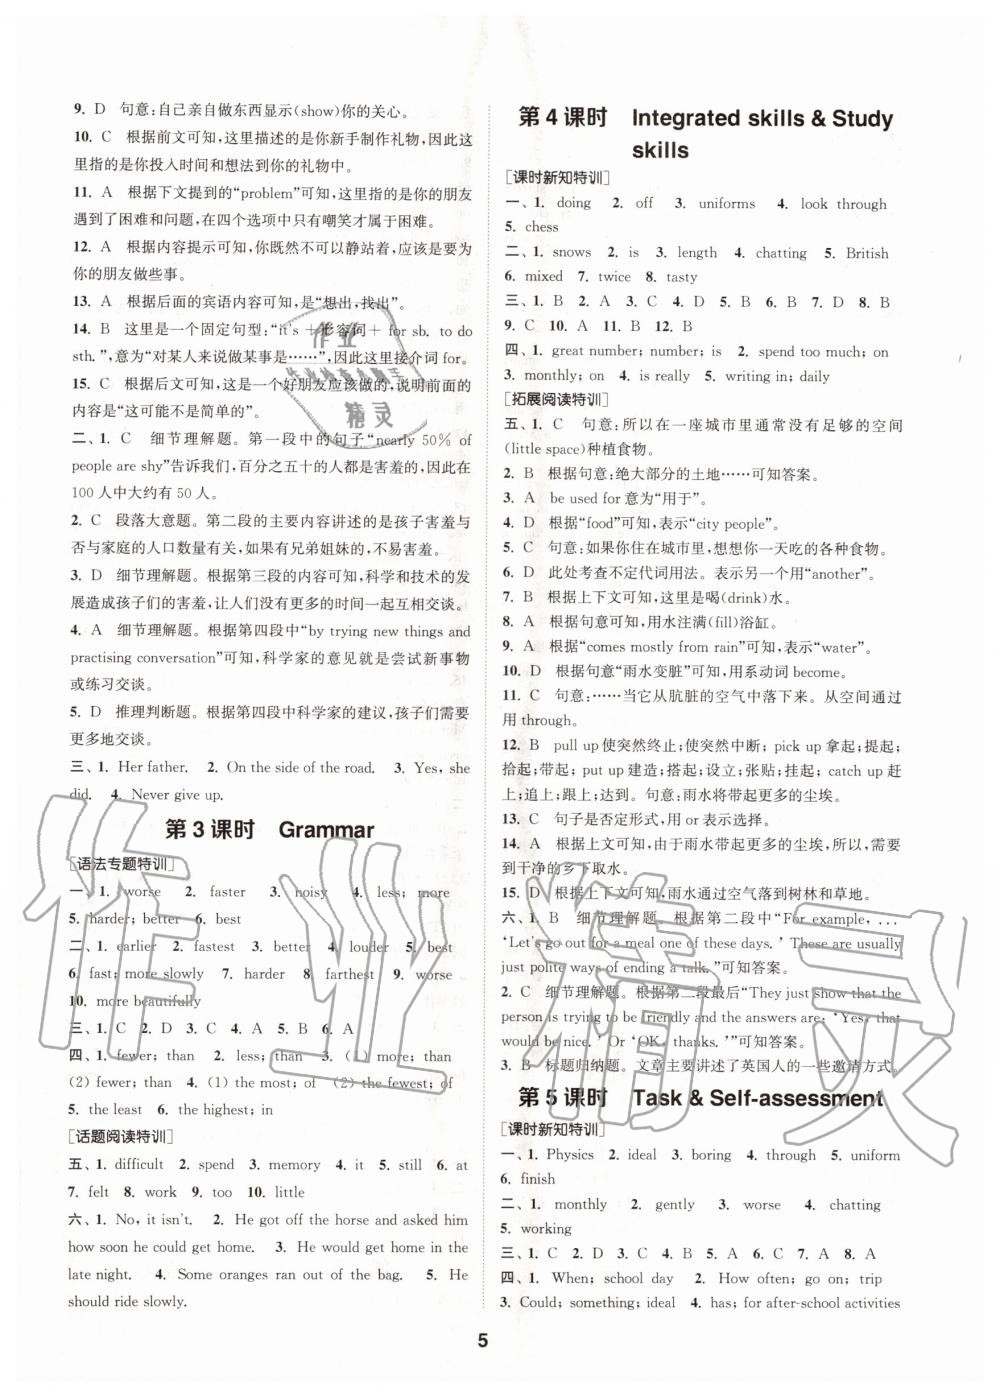 9. D 句意:自己亲自做东西显示(show)你的关心。
10. C 根据前文可知,这里描述的是你新手制作礼物,因此这
里指的是你投入时间和想法到你的礼物中。
11. A 根据下文提到的“problem”可知,这里指的是你的朋友
遇到了困难和问题,在四个选项中只有嘲笑才属于困难。
12. A 根据内容提示可知,你既然不可以静站着,应该是要为
你的朋友做些事。
13. A 根据后面的宾语内容可知,是“想出,找出”。
14. B 这里是一个固定句型:“it's +形容词+ for sb. to do
sth.”,意为“对某人来说做某事是……”,因此这里接介词for。
15. C 根据后文可知,这是一个好朋友应该做的,说明前面的
内容是“这可能不是简单的”。
二、1. C 细节理解题。第一段中的句子“nearly 50% of
people are shy”告诉我们,百分之五十的人都是害羞的,因此在
100人中大约有50人。
2. C 段落大意题。第二段的主要内容讲述的是孩子害羞与
否与家庭的人口数量有关,如果有兄弟姐妹的,不易害羞。
3. D 细节理解题。根据第三段的内容可知,科学和技术的发
展造成孩子们的害羞,让人们没有更多的时间一起互相交谈。
4. A 细节理解题。根据第四段中“by trying new things and
practising conversation”可知,科学家的意见就是尝试新事物
或练习交谈。
5. D 推理判断题。根据第四段中科学家的建议,孩子们需要
更多地交谈。
三、1. Her father. 2. On the side of the road. 3. Yes, she
did. 4. Never give up.
第3课时 Grammar
[语法专题特训]
一、1. worse 2. faster 3. noisy 4. less; more
5. harder; better 6. best
二、1. earlier 2. fastest 3. better 4. louder 5. best
6. fast; more slowly 7. harder 8. farthest 9. worse
10. more beautifully
三、1. C 2. D 3. C 4. A 5. B 6. A
四、1. fewer; than 2. less; than 3. (1) more; than
(2) fewer; than 4. (1) the most; of (2) the fewest; of
5. the least 6. the highest; in
[话题阅读特训]
五、1. difficult 2. spend 3. memory 4. it 5. still 6. at
7. felt 8. work 9. too 10. little
六、1. No, it isn't. 2. He got off the horse and asked him
how soon he could get home. 3. He would get home in the
late night. 4. Some oranges ran out of the bag. 5. He
should ride slowly.
第4课时 Integrated skills & Study
skills
[课时新知特训]
一、1. doing 2. off 3. uniforms 4. look through
5. chess
二、1. snows 2. is 3. length 4. chatting 5. British
6. mixed 7. twice 8. tasty
三、1. B 2. A 3. C 4. D 5. B 6. C 7. D 8. B
9. C 10. A 11. B 12. B
四、1. great number; number; is 2. spend too much; on
3. monthly; on 4. is really 5. writing in; daily
[拓展阅读特训]
五、1. C 句意:所以在一座城市里通常没有足够的空间
(little space)种植食物。
2. B 根据句意:绝大部分的土地……可知答案。
3. A be used for意为“用于”。
4. D 根据“food”可知,表示“city people”。
5. C 句意:如果你住在城市里,想想你一天吃的各种食物。
6. D 此处考查不定代词用法。表示另一个用“another”。
7. B 根据上下文可知,这里是喝(drink)水。
8. A 根据句意可知,用水注满(fill)浴缸。
9. A 根据“comes mostly from rain”可知,表示“water”。
10. D 根据句意“雨水变脏”可知,用系动词become。
11. C 句意:……当它从肮脏的空气中落下来。从空间通过
用through。
12. B pull up使突然终止;使突然中断; pick up 拿起;提起;
拾起;带起; put up 建造;搭起;设立;张贴;挂起; catch up 赶
上;追上;跟上;达到。句意:雨水将带起更多的尘埃。
13. C 句子是否定形式,用or表示选择。
14. A 根据上下文可知,由于雨水带起更多的尘埃,所以需要
到干净的乡下取水。
15. D 根据上下文可知,雨水通过空气落到树林和草地。
六、1. B 细节理解题。根据第二段中“For example, ...
‘Let's go out for a meal one of these days.’ These are usually
just polite ways of ending a talk.”可知答案。
2. C 细节理解题。根据第二段最后“They just show that the
person is trying to be friendly and the answers are: ‘Yes, that
would be nice.’ Or ‘OK, thanks.’”可知答案。
3. B 标题归纳题。文章主要讲述了英国人的一些邀请方式。
第5课时 Task & Self-assessment
[课时新知特训]
一、1. Physics 2. ideal 3. boring 4. through 5. uniform
6. finish
二、1. monthly 2. gently 3. worse 4. chatting
5. working
三、1. C 2. D 3. C 4. B 5. A 6. C 7. A 8. C
四、1. When; school day 2. How often; go on; trip
3. Could; something; ideal 4. has; for after-school activities
5
作业精灵